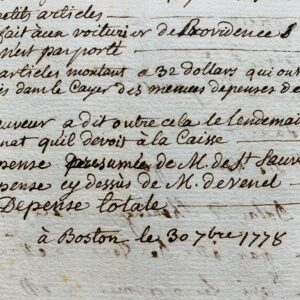 petits articles
fait à un voiturier de Providence
n'est pas porté
articles montant a 32 dollars qui ont
dans le Cayer des menues depenses de
a dit outre cela le lendemain
qu'il devoit à la Caisse
presumée de M. de St Sauv
cy dessus de M. de venel
Depense totale
à Boston le 30 7bre 1778